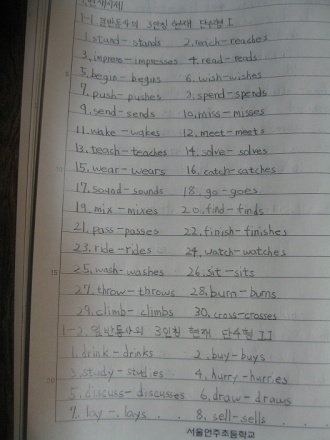 1-1 일반동사의 3인칭 현재 단수형 I
1. stand - stands 2. reach - reaches
3. impress - impresses 4. read - reads
5. begin - begins 6. wish - wishes
7. push - pushes 8. spend - spends
9. send - sends 10. miss - misses
11. wake - wakes 12. meet - meets
13. teach - teaches 14. solve - solves
15. wear - wears 16. catch - catches
17. sound - sounds 18. go - goes
19. mix - mixes 20. find - finds
21. pass - passes 22. finish - finishes
23. ride - rides 24. watch - watches
25. wash - washes 26. sit - sits
27. throw - throws 28. burn - burns
29. climb - climbs 30. cross - crosses
1-2. 일반동사의 3인칭 현재 단수형 II
1. drink - drinks 2. buy - buys
3. study - studies 4. hurry - hurries
5. discuss - discusses 6. draw - draws
7. lay - lays 8. sell - sells
서울언주초등학교